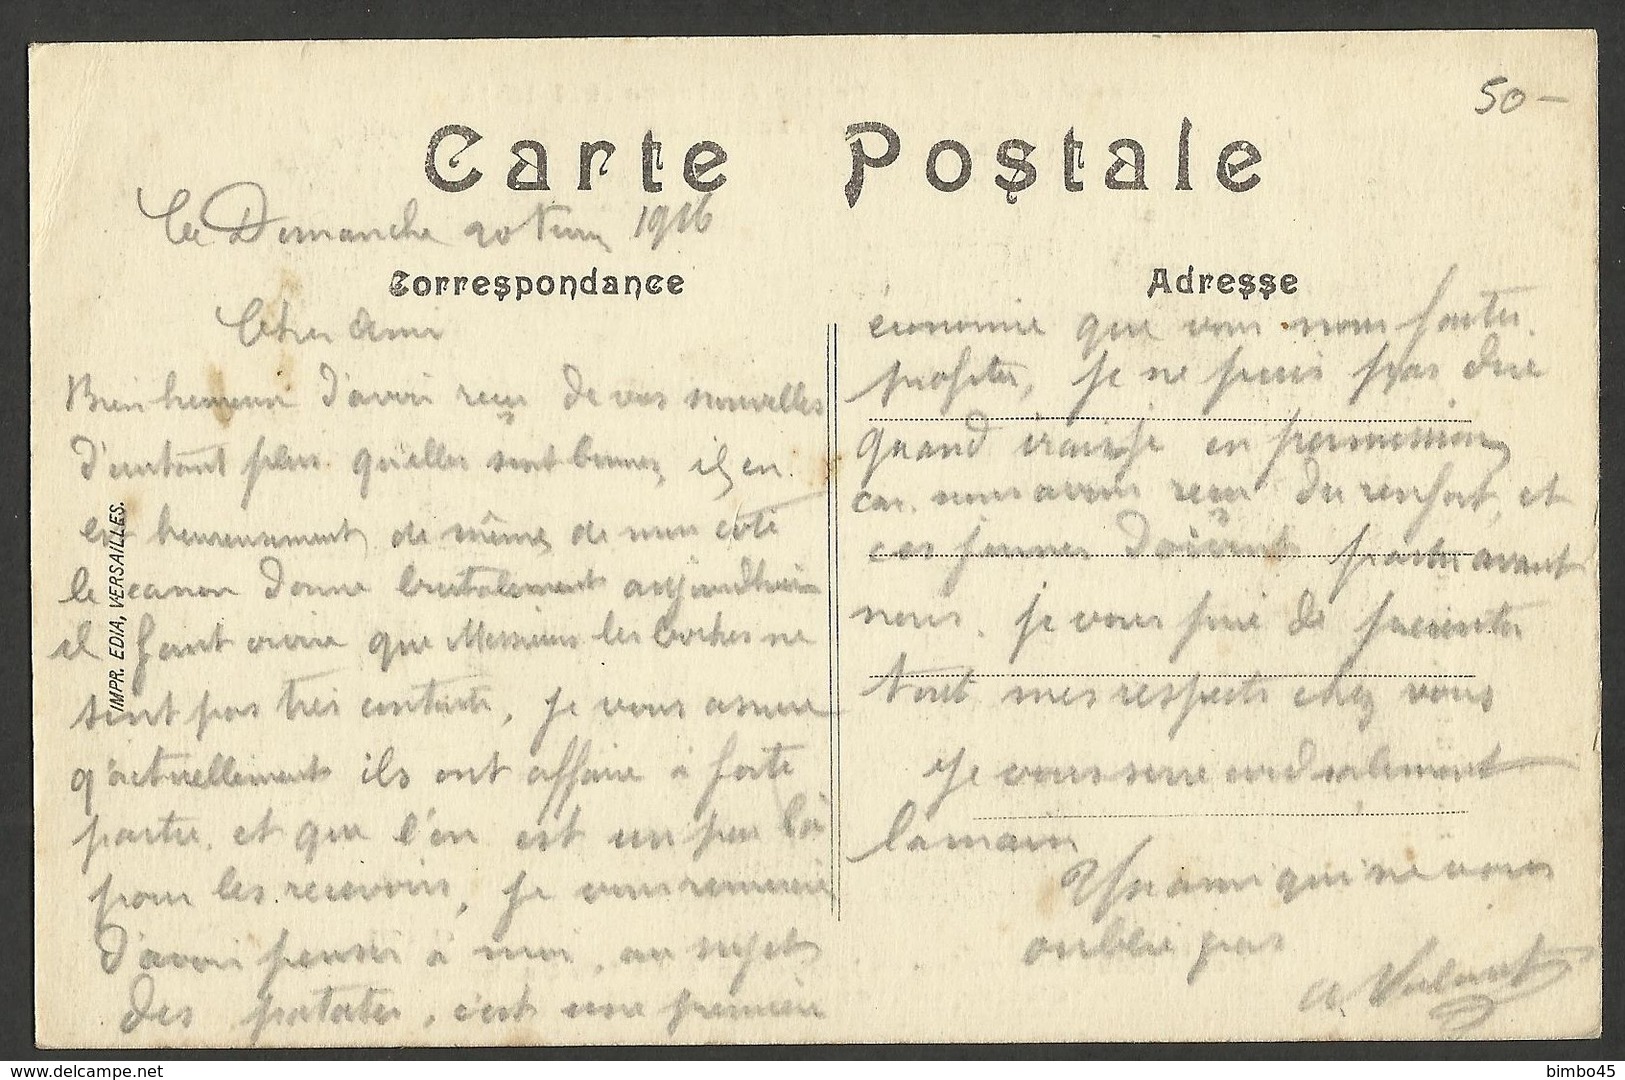 50-
Carte Postale
Le Dimanche 20 1916
Correspondance
Cher Ami
Bien heureux d'avoir reçu de vos nouvelles
d'autant plus qu'elles sont bonnes, il en
est heureusement de même de mon coté
le canon donne brutalement aujourdhui
il faut croire que Messieurs les boches ne
sont pas très contents, je vous assure
q'actuellement ils ont affaire à forte
partie, et que l'on est un peu là
pour les recevoir, je vous remercie
d'avoir pensé à moi, au sujet
des patates, c'est une première
IMPR. EDIA, VERSAILLES.
Adresse
économie que vous nous faites
profiter, je ne puis pas dire
quand irais-je en permission
car nous avons reçu du renfort, et
ces jeunes doivent partir avant
nous, je vous prie de présenter
tout mes respects chez vous
Je vous serre cordialement
la main
Un ami qui ne vous
oublie pas
delcampe.net
bimbo45